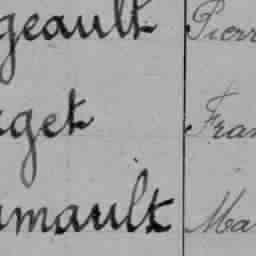 geault Pierr
get Fran
mault Ma